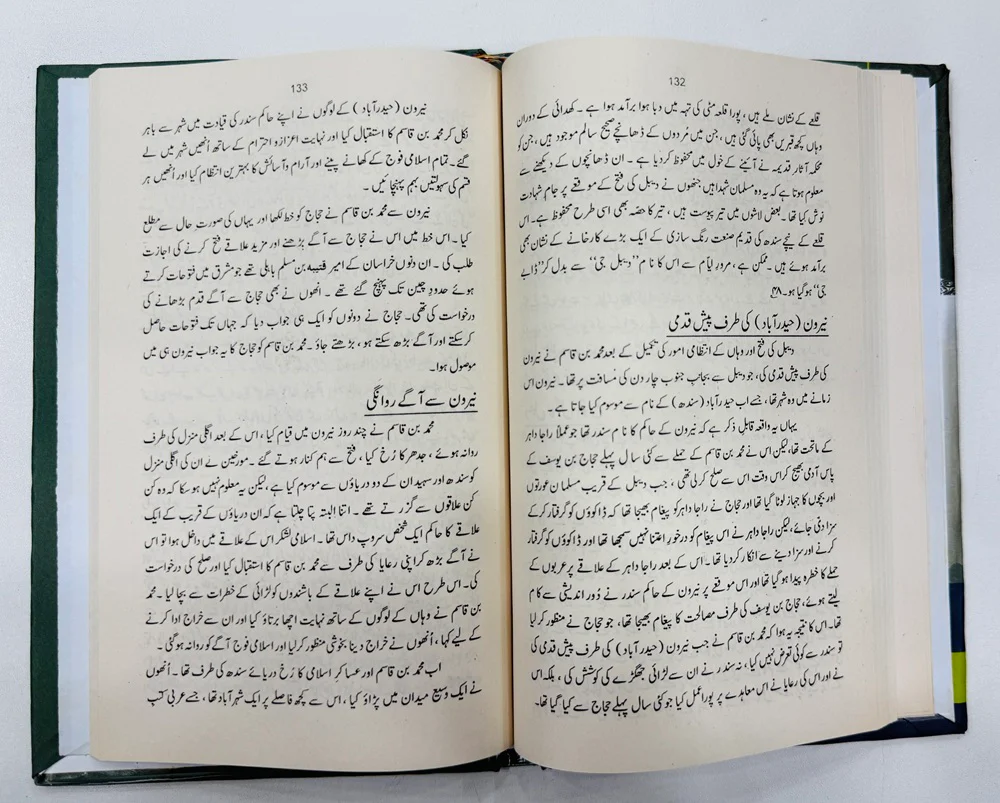 132
قلعے کے نشان ملے ہیں، پورا قلعہ مٹی کی تہہ میں دبا ہوا برآمد ہوا ہے ۔ کھدائی کے دوران
وہاں کچھ قبریں بھی پائی گئی ہیں، جن میں مُردوں کے ڈھانچے صحیح سالم موجود ہیں، جن کو
محکمہ آثار قدیمہ نے آئینے کے خول میں محفوظ کر دیا ہے ۔ ان ڈھانچوں کے دیکھنے سے
معلوم ہوتا ہے کہ یہ وہ مسلمان شہدا ہیں جنھوں نے دیبل کی فتح کے موقعے پر جام شہادت
نوش کیا تھا۔ بعض لاشوں میں تیر پیوست ہیں، تیر کا حصہ بھی اسی طرح محفوظ ہے۔ اس
قلعے کے نیچے سندھ کی قدیم صنعت رنگ سازی کے ایک بڑے کارخانے کے نشان بھی
برآمد ہوئے ہیں ۔ ممکن ہے، مرورِ ایام سے اس کا نام ”دیبل جی“ سے بدل کر ”ڈابے
جی“ ہو گیا ہو۔ ۴۸
نیرون (حیدرآباد) کی طرف پیش قدمی
دیبل کی فتح اور وہاں کے انتظامی امور کی تکمیل کے بعد محمد بن قاسم نے نیرون
کی طرف پیش قدمی کی، جو دیبل سے بجانب جنوب چار دن کی مُسافت پر تھا ۔ نیرون اس
زمانے میں وہ شہر تھا، جسے اب حیدرآباد (سندھ) کے نام سے موسوم کیا جاتا ہے ۔
یہاں یہ واقعہ قابل ذکر ہے کہ نیرون کے حاکم کا نام سندر تھا جو عملاً راجا داہر
کے ماتحت تھا، لیکن اس نے محمد بن قاسم کے حملے سے کئی سال پہلے حجاج بن یوسف کے
پاس آدمی بھیج کر اس وقت اس سے صلح کر لی تھی، جب دیبل کے قریب مسلمان عورتوں
اور بچوں کا جہاز لوٹا گیا تھا اور حجاج نے راجا داہر کو پیغام بھیجا تھا کہ ڈاکوؤں کو گرفتار کر کے
سزا دی جائے، لیکن راجا داہر نے اس پیغام کو درخورِ اعتنا نہیں سمجھا تھا اور ڈاکوؤں کو گرفتار
کرنے اور سزا دینے سے انکار کر دیا تھا۔ اس کے بعد راجا داہر کے علاقے پر عربوں کے
حملے کا خطرہ پیدا ہو گیا تھا اور اس موقعے پر نیرون کے حاکم سندر نے دُور اندیشی سے کام
لیتے ہوئے، حجاج بن یوسف کی طرف مصالحت کا پیغام بھیجا تھا، جو حجاج نے منظور کر لیا
تھا۔ اس کا نتیجہ یہ ہوا کہ محمد بن قاسم نے جب نیرون (حیدرآباد) کی طرف پیش قدمی کی
تو سندر سے کوئی تعرض نہیں کیا، نہ سندر نے ان سے لڑائی جھگڑے کی کوشش کی، بلکہ اس
نے اور اس کی رعایا نے اس معاہدے پر پورا عمل کیا جو کئی سال پہلے حجاج سے کیا گیا تھا۔
133
نیرون (حیدرآباد) کے لوگوں نے اپنے حاکم سندر کی قیادت میں شہر سے باہر
نکل کر محمد بن قاسم کا استقبال کیا اور نہایت اعزاز و احترام کے ساتھ اُنھیں شہر میں لے
گئے۔ تمام اسلامی فوج کے کھانے پینے اور آرام و آسائش کا بہترین انتظام کیا اور اُنھیں ہر
قسم کی سہولتیں بہم پہنچائیں ۔
نیرون سے محمد بن قاسم نے حجاج کو خط لکھا اور یہاں کی صورت حال سے مطلع
کیا ۔ اس خط میں اس نے حجاج سے آگے بڑھنے اور مزید علاقے فتح کرنے کی اجازت
طلب کی ۔ ان دنوں خراسان کے امیر قتیبہ بن مسلم باہلی تھے جو مشرق میں فتوحات کرتے
ہوئے حدودِ چین تک پہنچ گئے تھے ۔ انھوں نے بھی حجاج سے آگے قدم بڑھانے کی
درخواست کی تھی۔ حجاج نے دونوں کو ایک ہی جواب دیا کہ جہاں تک فتوحات حاصل
کر سکتے اور آگے بڑھ سکتے ہو، بڑھتے جاؤ۔ محمد بن قاسم کو حجاج کا یہ جواب نیرون ہی میں
موصول ہوا۔
نیرون سے آگے روانگی
محمد بن قاسم نے چند روز نیرون میں قیام کیا، اس کے بعد اگلی منزل کی طرف
روانہ ہوئے، جدھر کا رُخ کیا، فتح سے ہم کنار ہوتے گئے ۔ مورخین نے ان کی اگلی منزل
کو سندھ اور سہیدان کے دو دریاؤں سے موسوم کیا ہے، لیکن یہ معلوم نہیں ہو سکا کہ وہ کن
کن علاقوں سے گزرتے تھے ۔ اتنا البتہ پتا چلتا ہے کہ ان دریاؤں کے قریب کے ایک
علاقے کا حاکم ایک شخص سروپ داس تھا۔ اسلامی لشکر اس کے علاقے میں داخل ہوا تو اس
نے آگے بڑھ کر اپنی رعایا کی طرف سے محمد بن قاسم کا استقبال کیا اور صلح کی درخواست
کی۔ اس طرح اس نے اپنے علاقے کے باشندوں کو لڑائی کے خطرات سے بچا لیا۔ محمد
بن قاسم نے وہاں کے لوگوں کے ساتھ نہایت اچھا برتاؤ کیا اور ان سے خراج ادا کرنے
کے لیے کہا، اُنھوں نے خراج دینا بخوشی منظور کر لیا اور اسلامی فوج آگے کو روانہ ہو گئی ۔
اب محمد بن قاسم اور عساکرِ اسلامی کا رُخ دریائے سندھ کی طرف تھا ۔ اُنھوں
نے ایک وسیع میدان میں پڑاؤ کیا، اس سے کچھ فاصلے پر ایک شہر آباد تھا، جسے عربی کتب